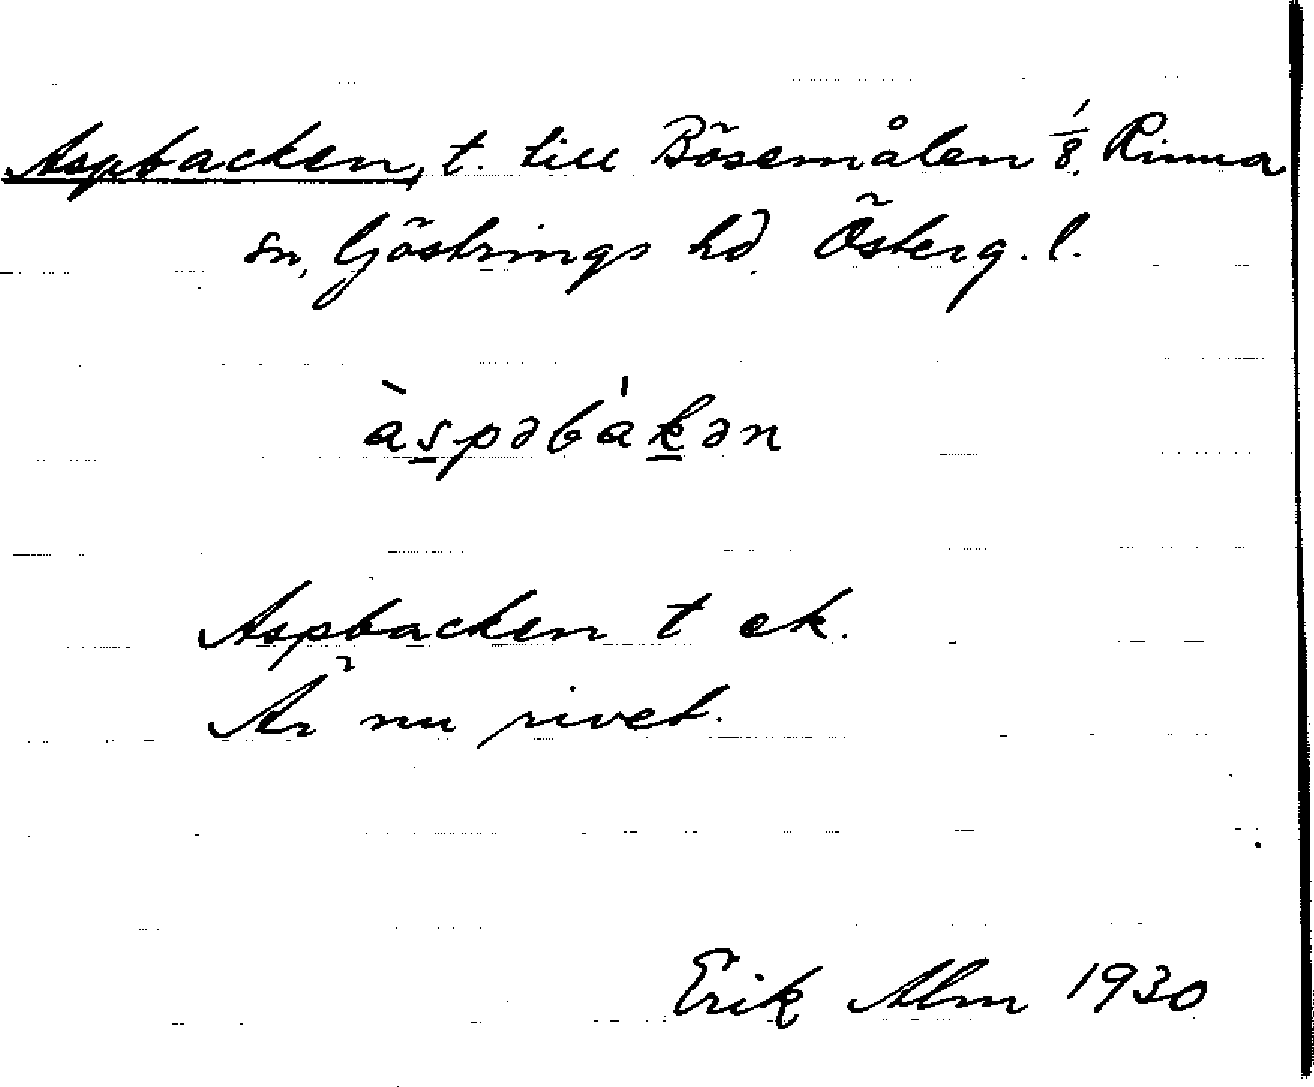 Aspbacken, t. till Bösemålen 1/8, Rinna
sn, Göstrings hd. Österg. l.
àspəbákən
Aspbacken t ek.
Är nu rivet.
Erik Alm 1930